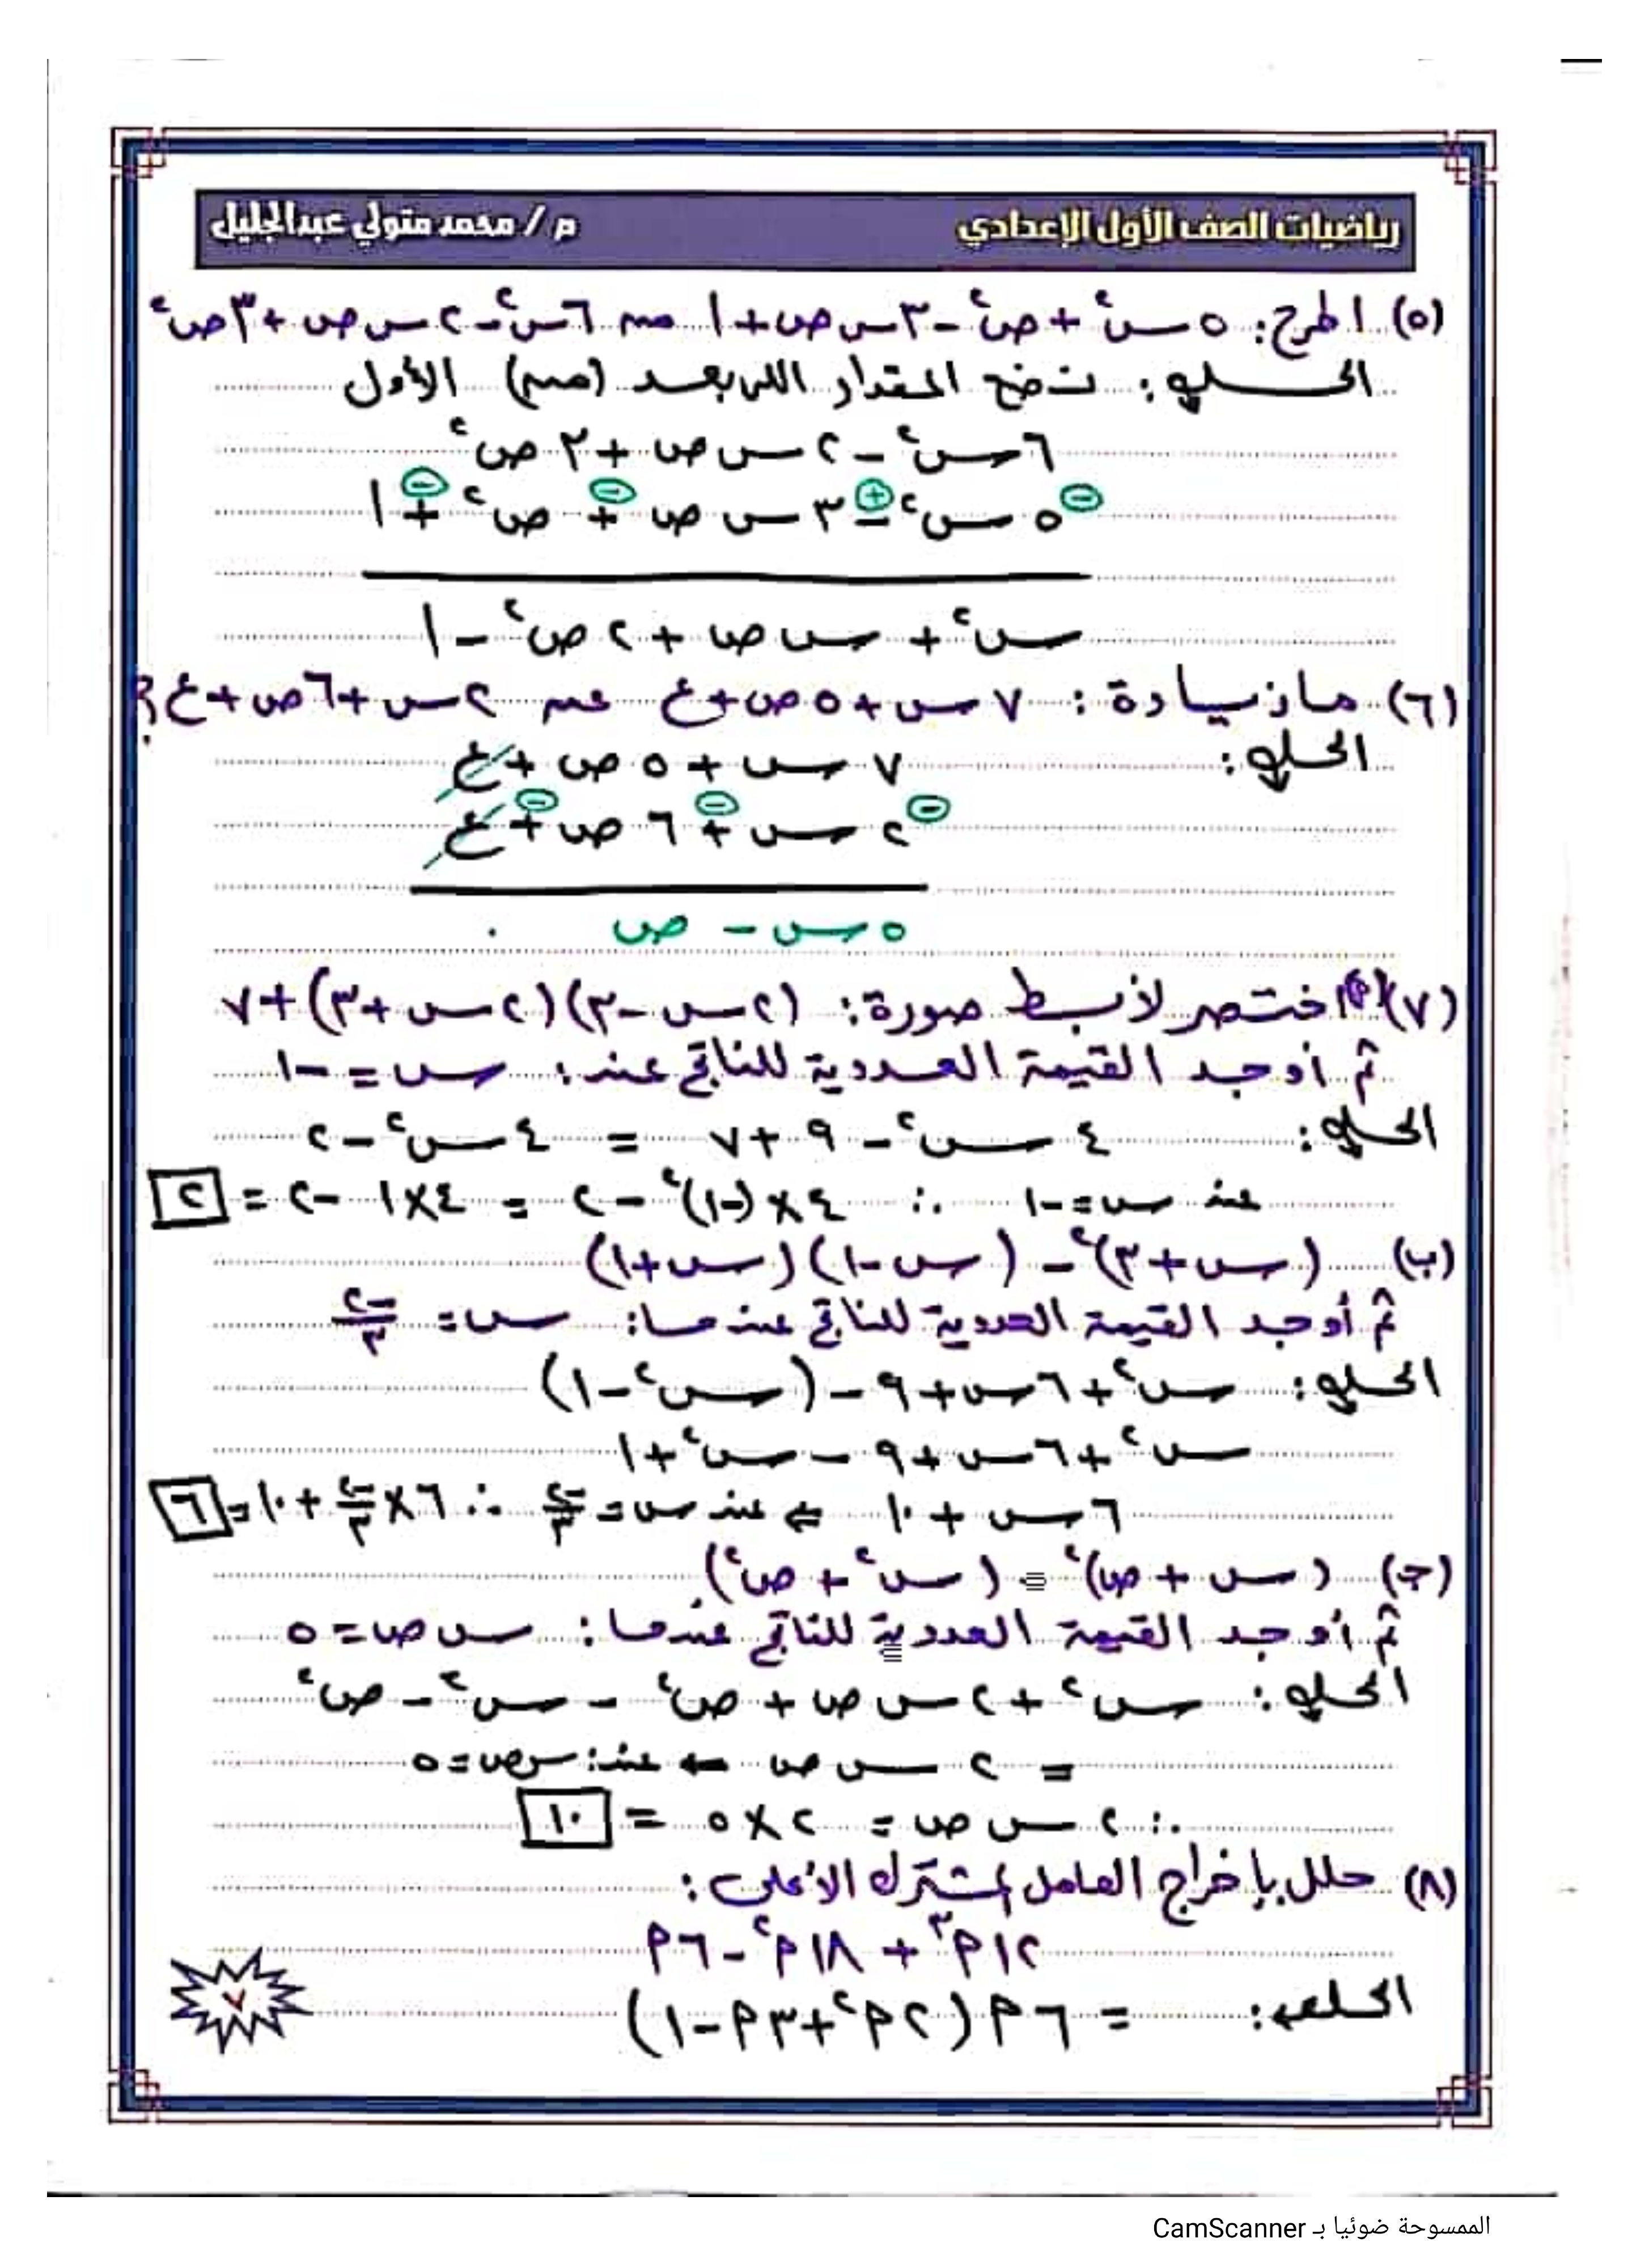 رياضيات الصف الأول الإعدادي
م / محمد متولي عبدالجليل
(٥) اطرح: ٥س٢ + ص٢ - ٣س ص + ١ من ٦س٢ - ٢س ص + ٣ص٢
الحل: نضع المقدار اللى بعد (من) الأول
٦س٢ - ٢س ص + ٣ص٢
٥س٢ - ٣س ص + ص٢ + ١
⊖ ⊕ ⊖ ⊖
س٢ + س ص + ٢ص٢ - ١
(٦) ما زيادة: ٧س + ٥ص + ع عن ٢س + ٦ص + ع؟
الحل: ٧س + ٥ص + ع
٢س + ٦ص + ع
⊖ ⊖ ⊖
٥س - ص .
(٧) (أ) اختصر لأبسط صورة: (٢س - ٣)(٢س + ٣) + ٧
ثم أوجد القيمة العددية للناتج عند: س = -١
الحل: ٤س٢ - ٩ + ٧ = ٤س٢ - ٢
عند س = -١ ∴ ٤ × (-١)٢ - ٢ = ٤ × ١ - ٢ = ٢
(ب) (س + ٣)٢ - (س - ١)(س + ١)
ثم أوجد القيمة العددية للناتج عندما: س = -٢/٣
الحل: س٢ + ٦س + ٩ - (س٢ - ١)
س٢ + ٦س + ٩ - س٢ + ١
٦س + ١٠ ⇐ عند س = -٢/٣ ∴ ٦ × -٢/٣ + ١٠ = ٦
(ج) (س + ص)٢ - (س٢ + ص٢)
ثم أوجد القيمة العددية للناتج عندما: س ص = ٥
الحل: س٢ + ٢س ص + ص٢ - س٢ - ص٢
= ٢س ص ← عند: س ص = ٥
∴ ٢س ص = ٢ × ٥ = ١٠
(٨) حلل بإخراج العامل المشترك الأعلى:
١٢م٣ + ١٨م٢ - ٦م
الحل: = ٦م(٢م٢ + ٣م - ١)
٧
الممسوحة ضوئيا بـ CamScanner